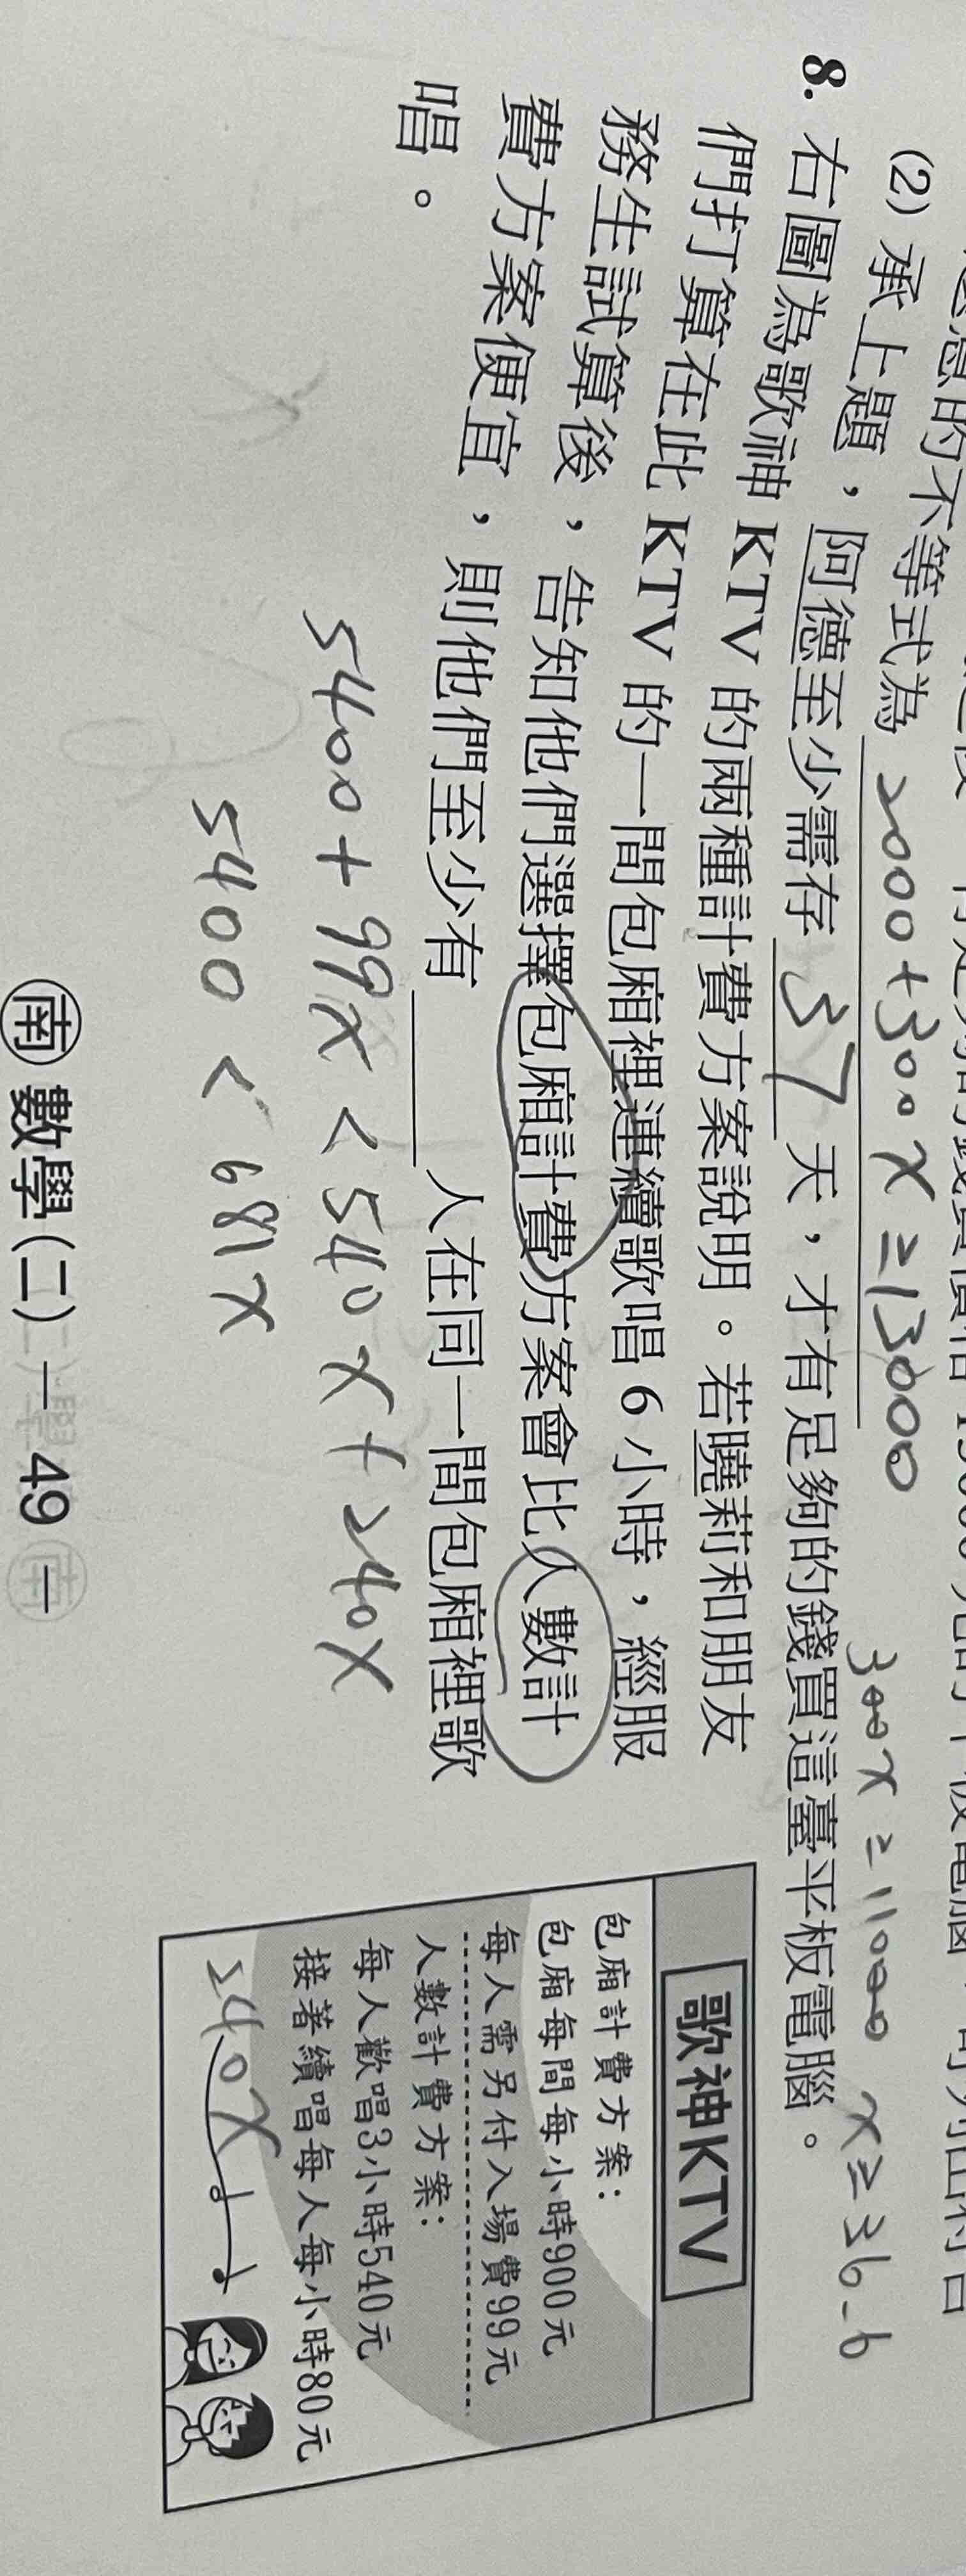 (2) 承上題，阿德至少需存 37 天，才有足夠的錢買這臺平板電腦。
不等式為 2000+300x≥13000
300x=11000 x≥36-6
8. 右圖為歌神 KTV 的兩種計費方案說明。若曉莉和朋友
們打算在此 KTV 的一間包廂裡連續歌唱 6 小時，經服
務生試算後，告知他們選擇包廂計費方案會比人數計
費方案便宜，則他們至少有 人在同一間包廂裡歌
唱。
5400+99x<540x+240x
5400<681x
歌神KTV
包廂計費方案：
包廂每間每小時900元
每人需另付入場費99元
人數計費方案：
每人歡唱3小時540元
接著續唱每人每小時80元
240x
南 數學(二) － 49 －